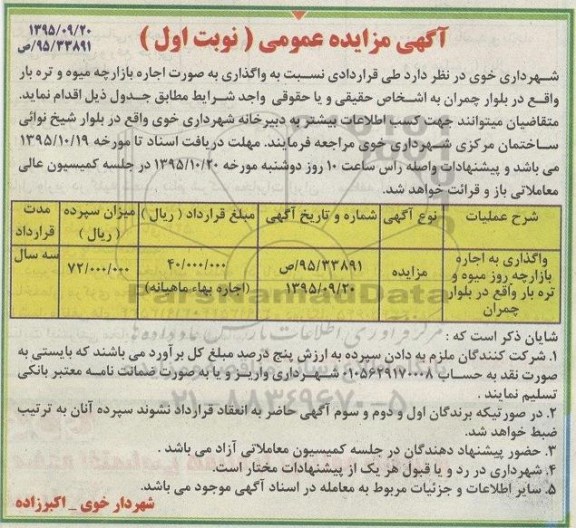 آگهی مزایده عمومی ( نوبت اول )
۱۳۹۵/۰۹/۲۰
۹۵/۳۳۸۹۱/ص
شهرداری خوی در نظر دارد طی قراردادی نسبت به واگذاری به صورت اجاره بازارچه میوه و تره بار
واقع در بلوار چمران به اشخاص حقیقی و یا حقوقی واجد شرایط مطابق جدول ذیل اقدام نماید.
متقاضیان میتوانند جهت کسب اطلاعات بیشتر به دبیرخانه شهرداری خوی واقع در بلوار شیخ نوائی
ساختمان مرکزی شهرداری خوی مراجعه فرمایند. مهلت دریافت اسناد تا مورخه ۱۳۹۵/۱۰/۱۹
می باشد و پیشنهادات واصله راس ساعت ۱۰ روز دوشنبه مورخه ۱۳۹۵/۱۰/۲۰ در جلسه کمیسیون عالی
معاملاتی باز و قرائت خواهد شد.
شرح عملیات | نوع آگهی | شماره و تاریخ آگهی | مبلغ قرارداد ( ریال ) | میزان سپرده ( ریال ) | مدت قرارداد
واگذاری به اجاره بازارچه روز میوه و تره بار واقع در بلوار چمران | مزایده | ۹۵/۳۳۸۹۱/ص ۱۳۹۵/۰۹/۲۰ | ۴۰/۰۰۰/۰۰۰ (اجاره بهاء ماهیانه) | ۷۲/۰۰۰/۰۰۰ | سه سال
ParsNamadData
مرکز فرآوری اطلاعات پارس نماد داده ها
۰۲۱-۸۸۳۴۹۶۷۰-۵
شایان ذکر است که :
۱. شرکت کنندگان ملزم به دادن سپرده به ارزش پنج درصد مبلغ کل برآورد می باشند که بایستی به
صورت نقد به حساب ۰۱۰۵۶۲۹۱۷۰۰۸ شهرداری واریز و یا به صورت ضمانت نامه معتبر بانکی
تسلیم نمایند .
۲. در صورتیکه برندگان اول و دوم و سوم آگهی حاضر به انعقاد قرارداد نشوند سپرده آنان به ترتیب
ضبط خواهد شد.
۳. حضور پیشنهاد دهندگان در جلسه کمیسیون معاملاتی آزاد می باشد .
۴. شهرداری در رد و یا قبول هر یک از پیشنهادات مختار است.
۵. سایر اطلاعات و جزئیات مربوط به معامله در اسناد آگهی موجود می باشد.
شهردار خوی _ اکبرزاده